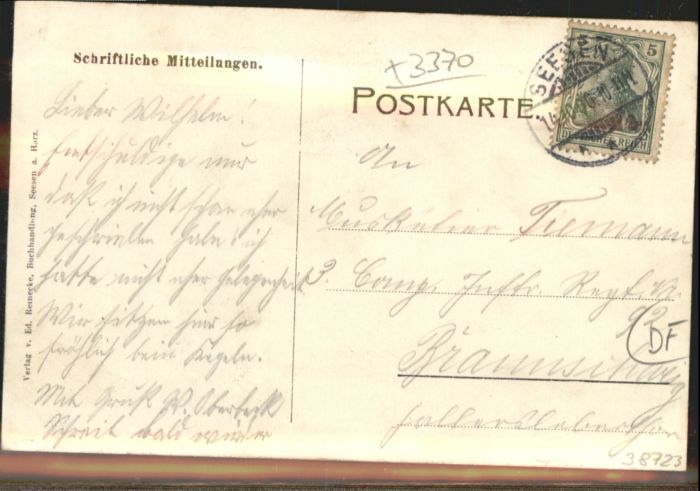 Schriftliche Mitteilungen.
+3370
POSTKARTE.
SEESEN
5
DEUTSCHES REICH
Lieber Wilhelm!
Entschuldige nur
daß ich nicht schon eher
geschrieben habe ich
hatte nicht eher Gelegenheit
Wir sitzen hier so
fröhlich beim Kegeln.
Mit Gruß W. Oberbeck
Schreib bald wieder
An
Musketier Tiemann
3. Comp. Inftr. Regt. N.
92
Braunschweig
Fallersleberthor
DF
38723
Verlag v. Ed. Resnecke, Buchhandlung, Seesen a. Harz.